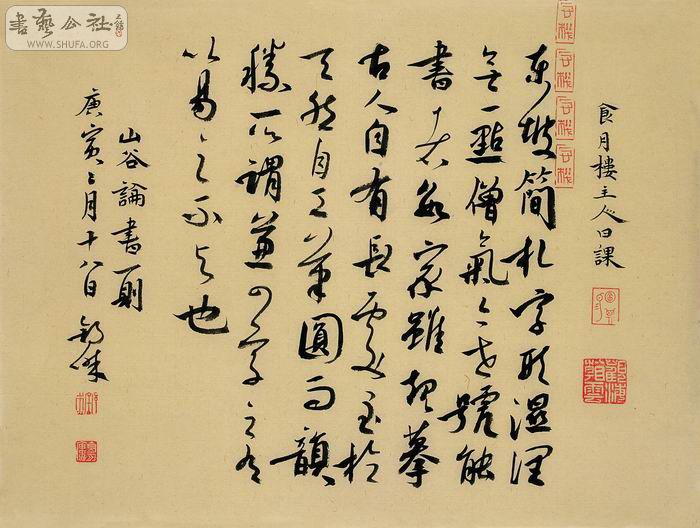 書藝公社
WWW.SHUFA.ORG
食月樓主人日課
東坡簡札字形溫潤
無一點僧氣今世號能
書者數家雖規摹
古人自有長處至於
天然自工筆圓而韻
勝所謂兼四子之有
以易之不與也
山谷論書一則
庚寅三月十八日